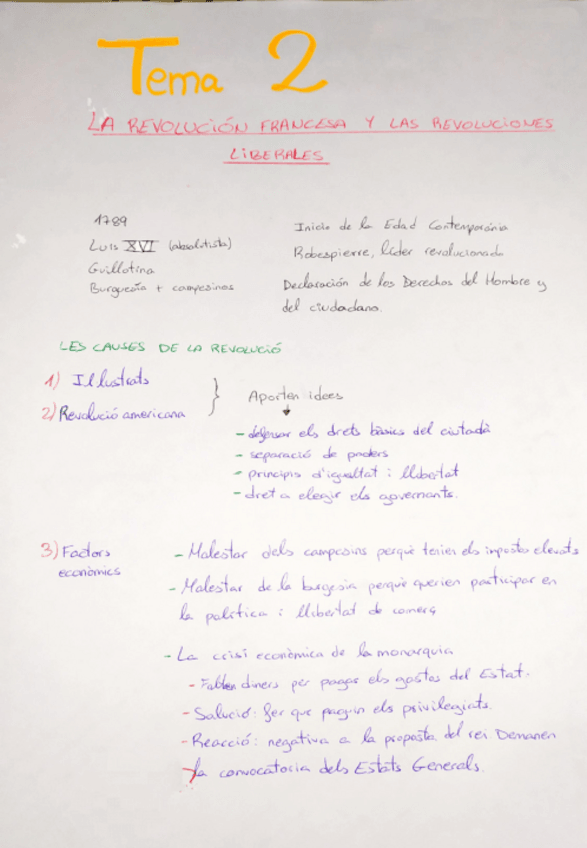 Tema 2
LA REVOLUCIÓN FRANCESA Y LAS REVOLUCIONES
LIBERALES
1789
Luis XVI (absolutista)
Guillotina
Burguesía + campesinos
Inicio de la Edad Contemporánia
Robespierre, líder revolucionado
Declaración de los Derechos del Hombre y
del ciudadano.
LES CAUSES DE LA REVOLUCIÓ
1) Il·lustrats
2) Revolució americana
Aporten idees
- defensar els drets bàsics del ciutadà
- separació de poders
- principis d'igualtat i llibertat
- dret a elegir els governants.
3) Factors
econòmics
- Malestar dels campesins perquè tenien els impostos elevats
- Malestar de la burgesia perquè querien participar en
la política i llibertat de comerç
- La crisi econòmica de la monarquia
- Falten diners per pagar els gastos del Estat.
- Salució: fer que paguin els privilegiats.
- Reacció: negativa a la proposta del rei Demanen
la convocatoria dels Estats Generals.